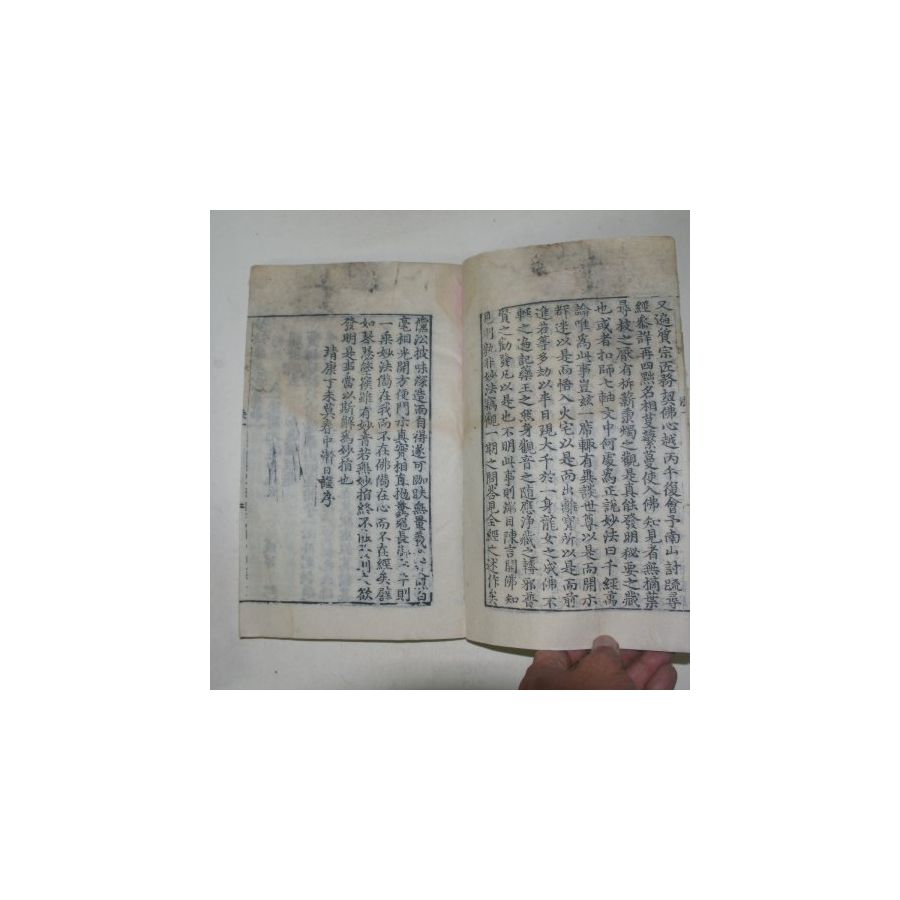 又遍質宗匠務契佛心越丙午復會于南山計䟽尋
經叅詳再四㸃名相蔓蘩蔓使人佛知見者無摘葉
尋枝之厭有柝薪秉燭之觀是真能發明秘要之藏
也或者扣師七軸文中何處爲正說妙法曰千經萬
論唯爲此事豈該一席輙有異談世尊以是而開示
群迷以是而悟入火宅以是而出離窮所以是而前
進若等多劫以半日現大千於一身龍女之成佛不
輕之遍記藥王之焚身觀音之隨應淨藏之轉邪普
賢之勸發凡以是也不明此事則滿目陳言開佛知
見得孰非妙法䆿一期之問荅甲全經之述作矣
儒㳂披味深造而自得遂可跏趺無量義白
毫相光開方便門示真實相直抛糞篲長御則
一乗妙法備在我而不在佛備在心而不在經矣辟
如琴瑟箜篌雖有妙音若無妙指終不能欲
發明是事當以斯解爲妙指也
靖康丁未暮春中澣日謹序